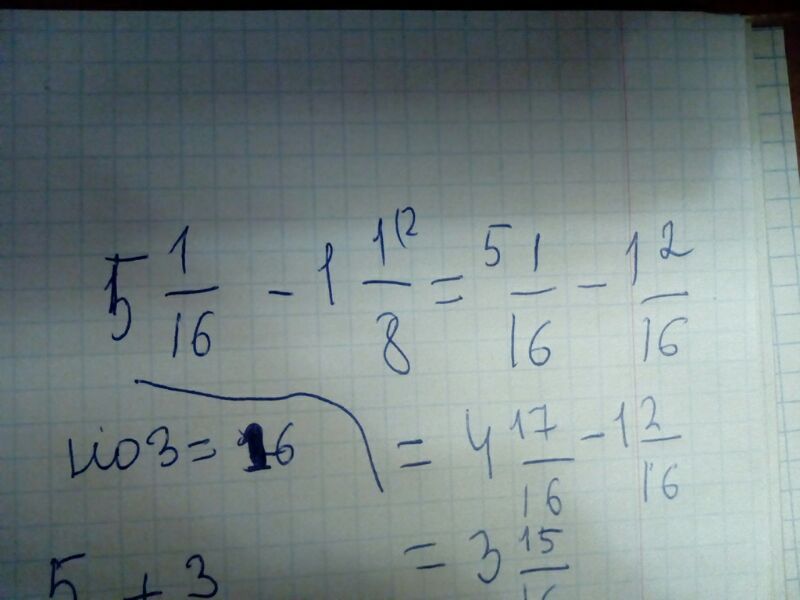 5 1/16 - 1 1/8 (2 = 5 1/16 - 1 2/16
ноз = 16
= 4 17/16 - 1 2/16
= 3 15/16
5 + 3